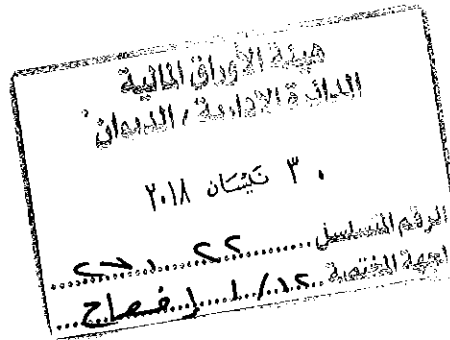 هيئة الأوراق المالية
الدائرة الإدارية / الديوان
٣٠ نيسان ٢٠١٨
الرقم المتسلسل
الجهة المختصة الإفصاح